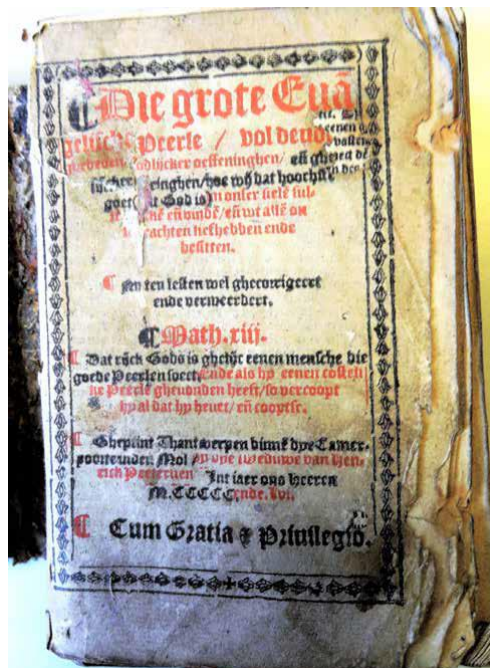 ¶ Die grote Euā
gelijcke Peerle / vol deuo-
oeffeninghen / eñ
hoe wij dat hoochste
goet God is) in onser siele sul-
eñ wt allē on
crachten liefhebben ende
besitten.
¶ Nv ten lesten wel ghecorrigeert
ende vermeerdert.
¶ Math. xiij.
¶ Dat rijck Gods is ghelijc eenen mensche die
goede Peerlen soect, Ende als hy eenen costeli
ke Peerle gheuonden heeft / so vercoopt
hy al dat hy heuet / eñ cooptse.
¶ Gheprint Thantwerpen binnē dye Camer-
poorte inden Mol / by dye weduwe van Hen-
rick Peetersen Int iaer ons heeren
M.CCCCC. ende. lvi.
¶ Cum Gratia & Priuilegio.